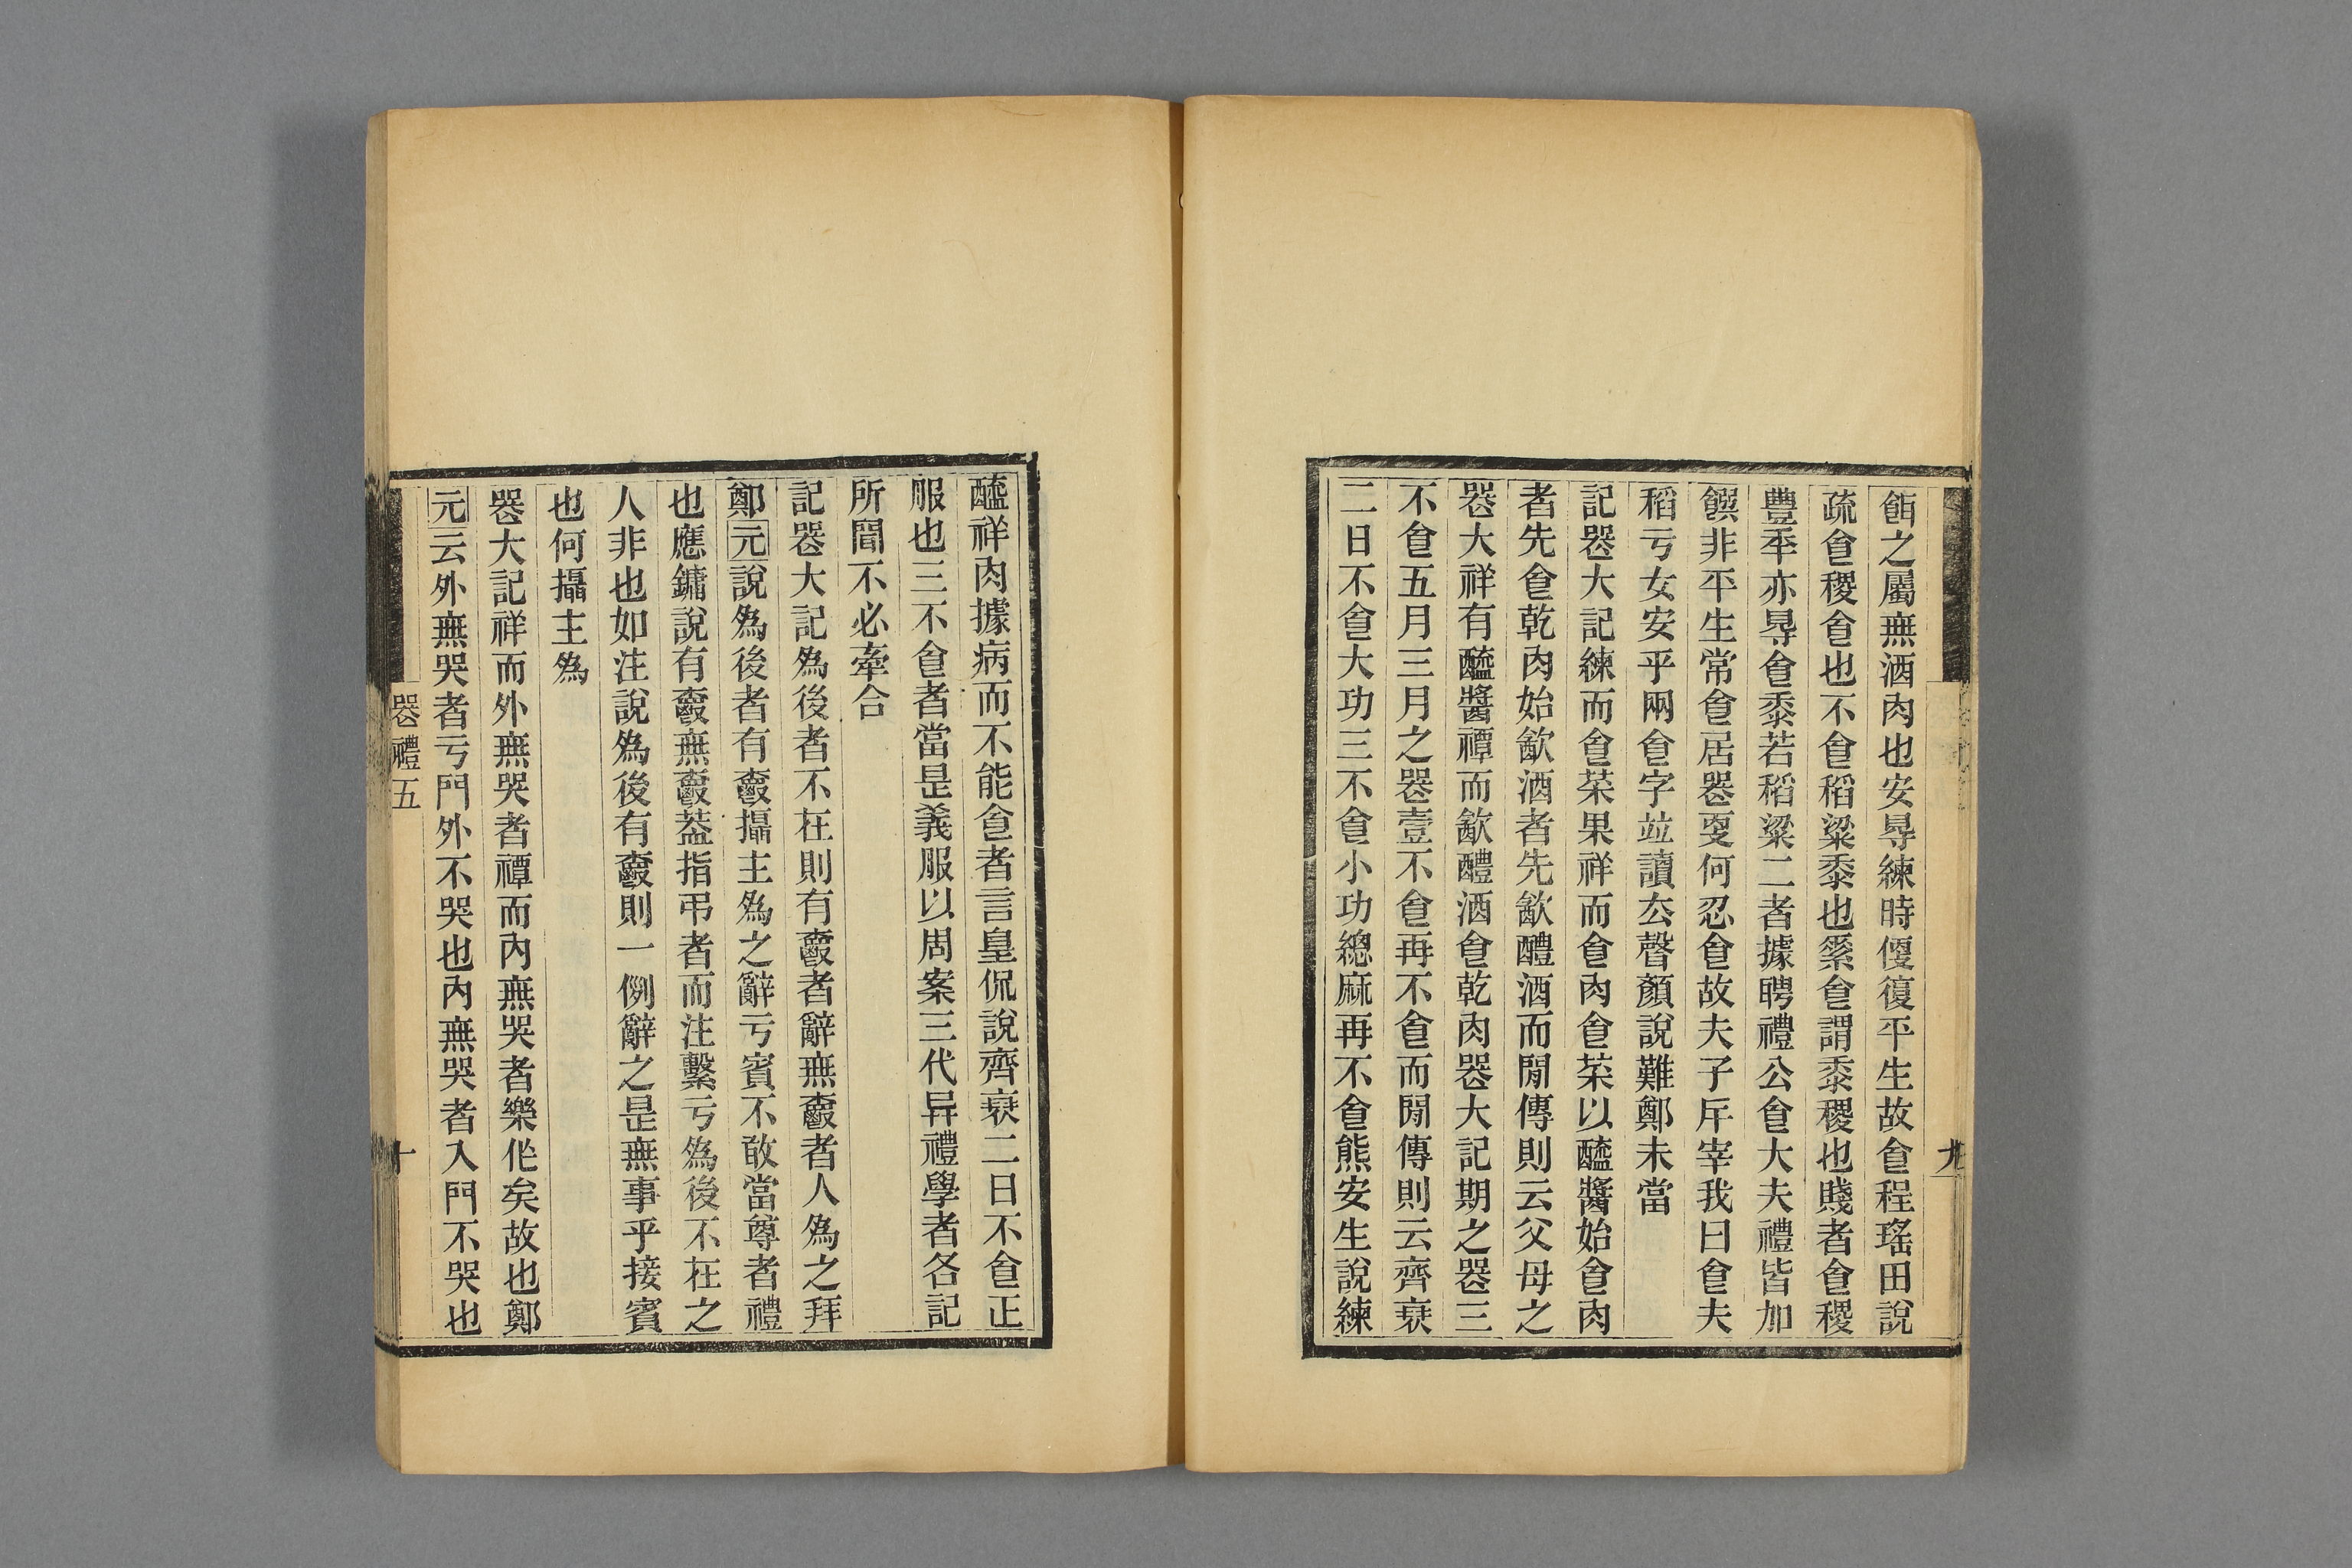 餌之屬無酒肉也安㝵練時偃復平生故𠊊程瑤田說
疏𠊊稷𠊊也不𠊊稻粱黍也絫𠊊謂黍稷也賤者𠊊稷
豐秊亦㝵𠊊黍若稻粱二者據聘禮公𠊊大夫禮皆加
饌非平生常𠊊居喪㪅何忍𠊊故夫子斥宰我曰𠊊夫
稻亏女安乎兩𠊊字竝讀厺聲顏說難鄭未當
記喪大記練而𠊊菜果祥而𠊊肉𠊊菜以醯醬始𠊊肉
者先𠊊乾肉始㱃酒者先㱃醴酒而閒傳則云父母之
喪大祥有醯醬禫而㱃醴酒𠊊乾肉喪大記期之喪三
不𠊊五月三月之喪壹不𠊊再不𠊊而閒傳則云齊衰
二日不𠊊大功三不𠊊小功緦麻再不𠊊熊安生說練
九
醯祥肉據病而不能𠊊者言皇侃說齊衰二日不𠊊正
服也三不𠊊者當是義服以周案三代异禮學者各記
所聞不必牽合
記喪大記為後者不在則有爵者辭無爵者人為之拜
鄭元說為後者有爵攝主為之辭亏賓不敢當尊者禮
也應鏞說有爵無爵葢指弔者而注繫亏為後不在之
人非也如注說為後有爵則一例辭之是無事乎接賓
也何攝主為
喪大記祥而外無哭者禫而內無哭者樂作矣故也鄭
元云外無哭者亏門外不哭也內無哭者入門不哭也
喪禮五
十